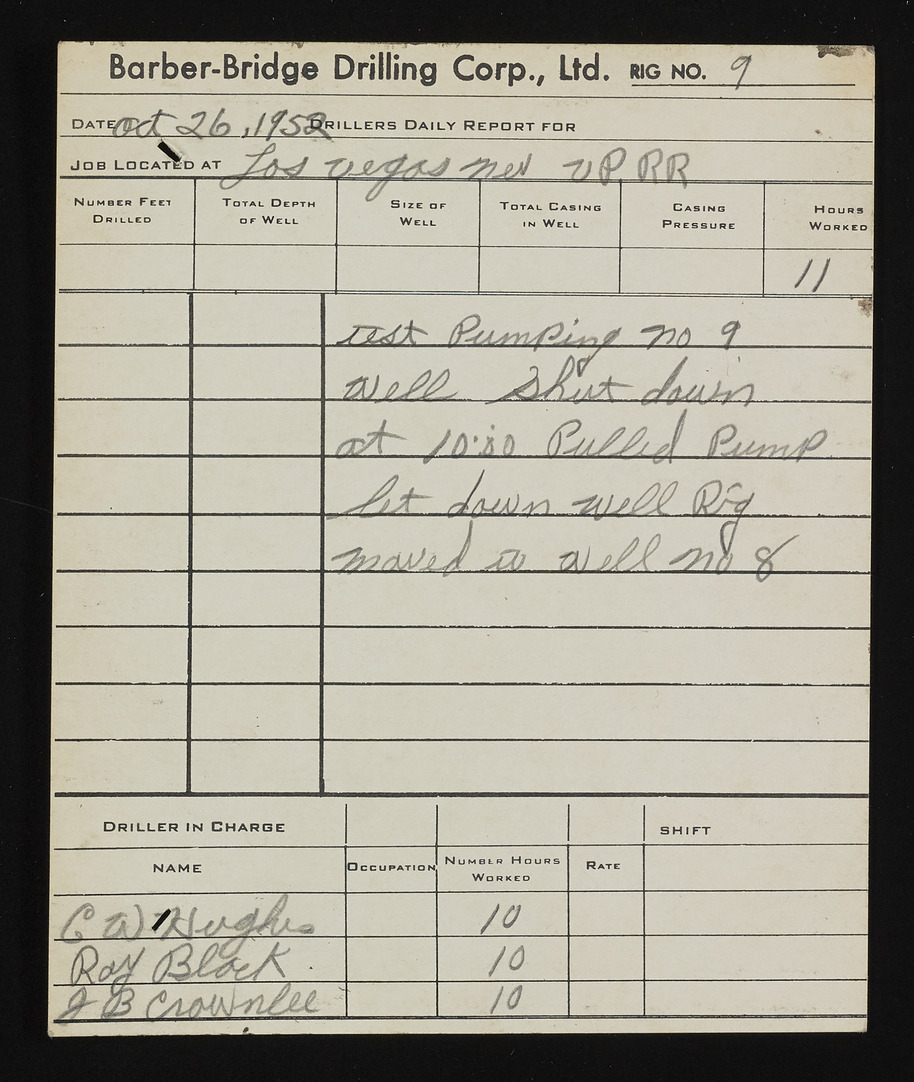 Barber-Bridge Drilling Corp., Ltd. RIG NO. 9
DATE Oct 26, 1952 DRILLERS DAILY REPORT FOR
JOB LOCATED AT Los Vegas Nev UPRR
NUMBER FEET DRILLED TOTAL DEPTH OF WELL SIZE OF WELL TOTAL CASING IN WELL CASING PRESSURE HOURS WORKED
11
test Pumping no 9
well Shut down
at 10:00 Pulled Pump
let down well Rig
moved to well no 8
DRILLER IN CHARGE SHIFT
NAME OCCUPATION NUMBER HOURS WORKED RATE
C W Hughes 10
Ray Black 10
J B Crownlee 10